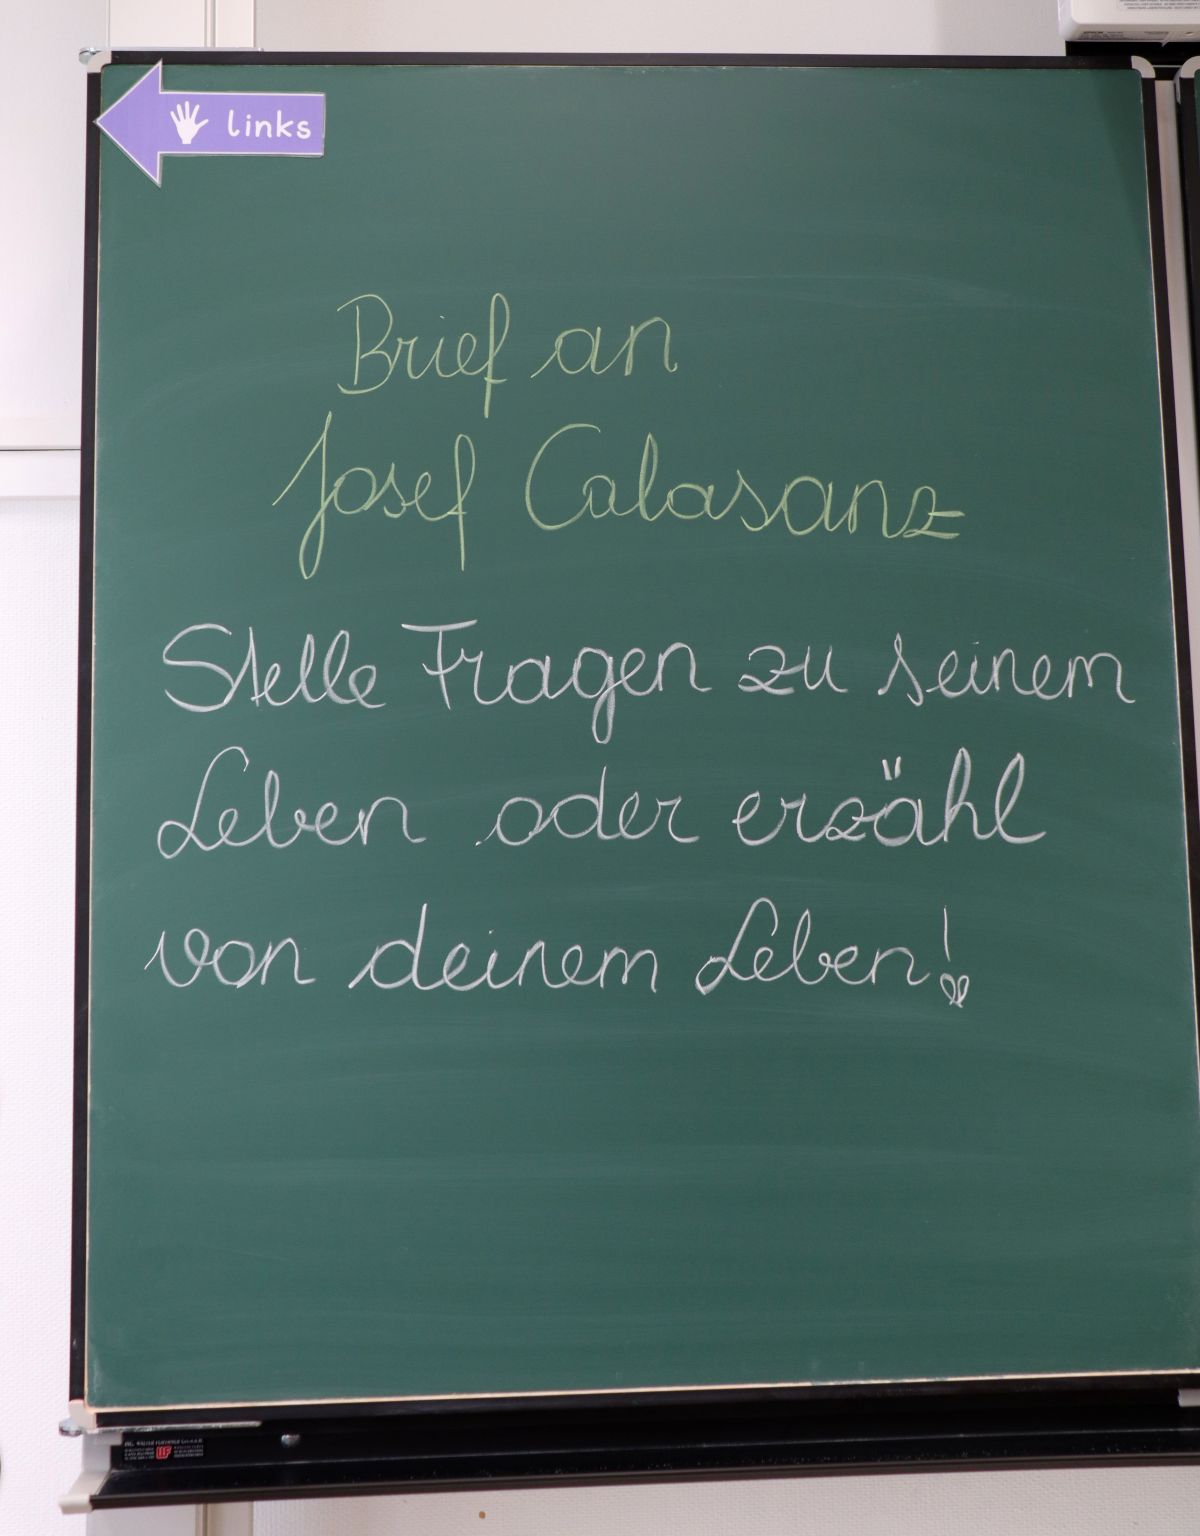 links
Brief an
Josef Calasanz
Stelle Fragen zu seinem
Leben oder erzähl
von deinem Leben!